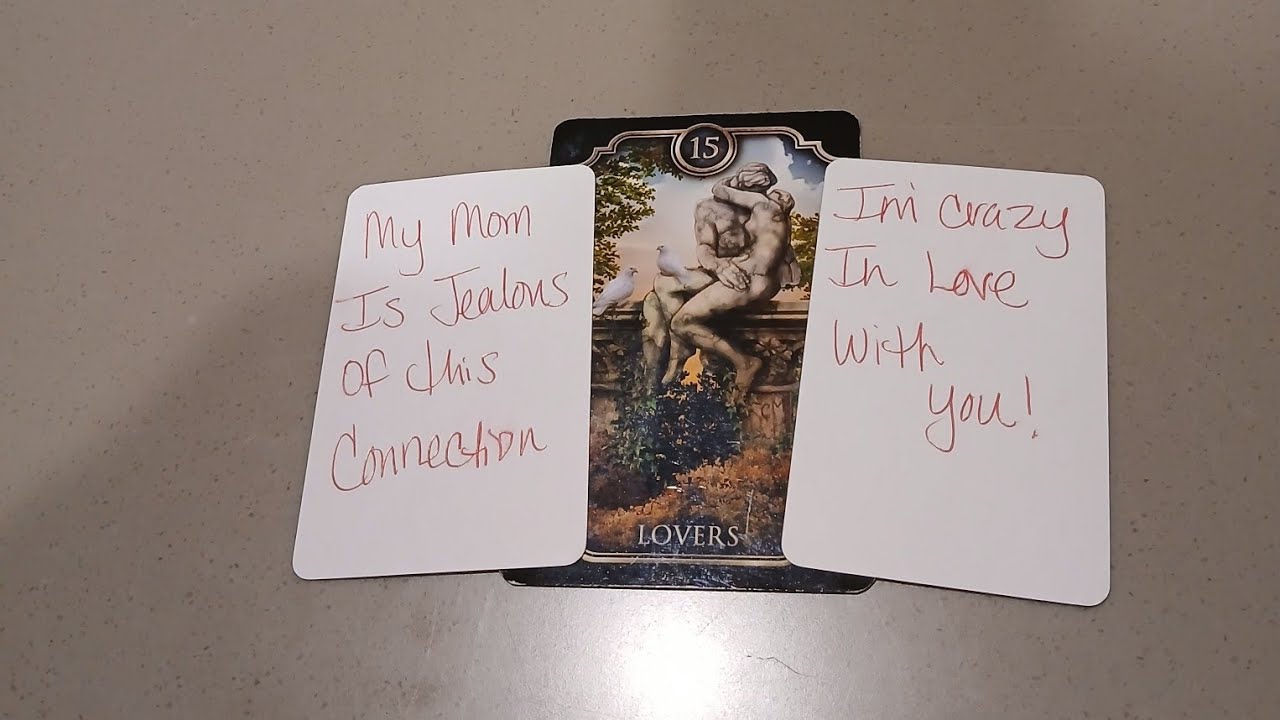 My Mom
Is Jealous
Of this
Connection
15
LOVERS
I'm crazy
In Love
With
you!